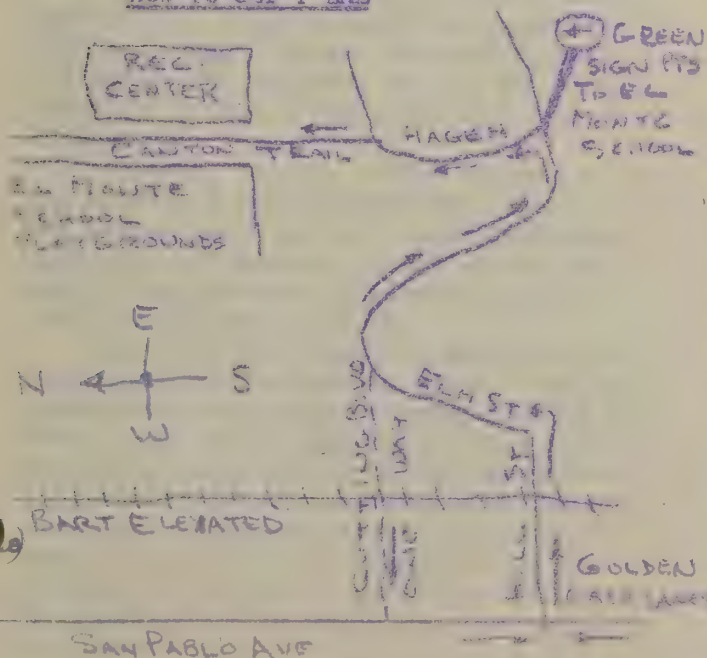 HOW TO
REC.
CENTER
GREEN
SIGN
TO EL
MONTE
SCHOOL
HAGEN
CANYON TRAIL
EL MONTE
SCHOOL
PLAYGROUNDS
E
N S
W
ELM ST
CUTTING BLVD
WAY
ST
BART ELEVATED
GOLDEN
SAN PABLO AVE